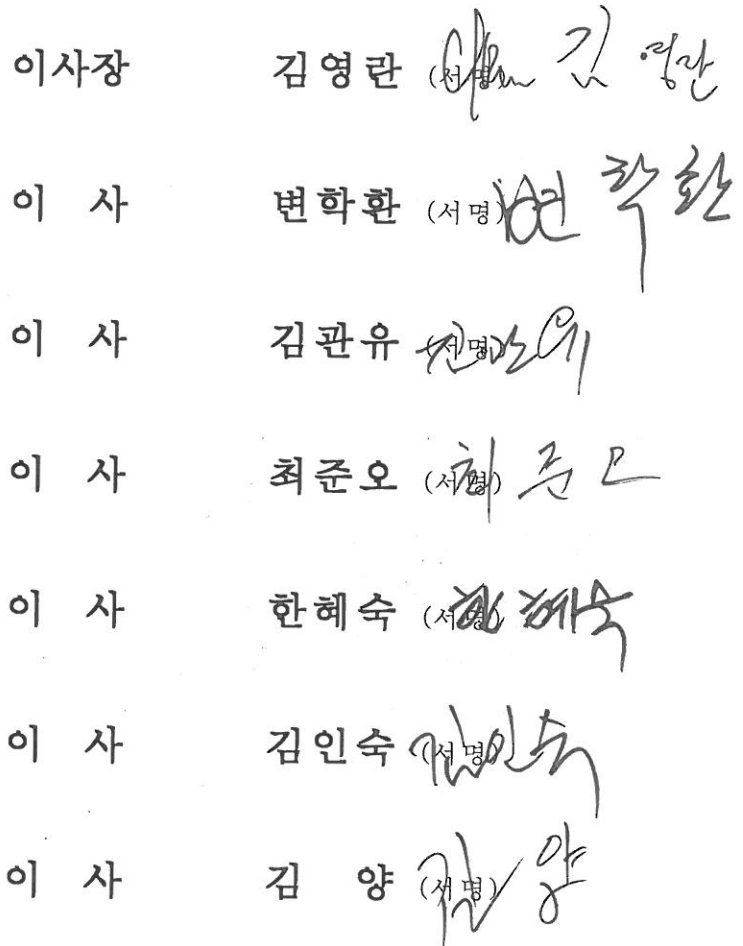 이사장 김영란 (서명) 김영란
이 사 변학환 (서명) 변학환
이 사 김관유 (서명)
이 사 최준오 (서명) 최준오
이 사 한혜숙 (서명) 한혜숙
이 사 김인숙 (서명) 김인숙
이 사 김 양 (서명) 김양